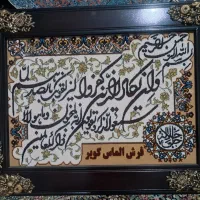 بسم الله الرحمن الرحیم
و ان یکاد الذین کفروا لیزلقونک بابصارهم
لما سمعوا الذکر و یقولون انه لمجنون
و ما هو الا ذکر للعالمین
فرش الماس کویر